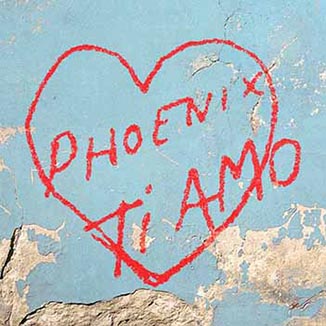 PHOENIX
Ti AMO